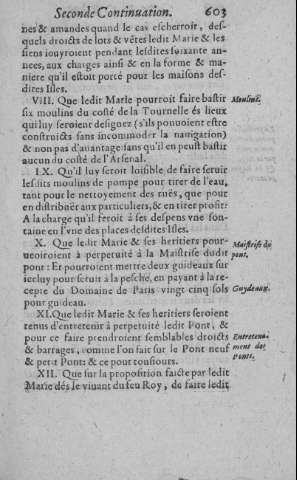 Seconde Continuation. 603
nes & amandes quand le cas escherroit, des-
quels droicts de lots & vẽtes ledit Marie & les
siens iouyroient pendant lesdites soixante an-
nees, aux charges ainsi & en la forme & ma-
niere qu'il estoit porté pour les maisons des-
dites Isles.
VIII. Que ledit Marie pourroit faire bastir
Moulins.
six moulins du costé de la Tournelle és lieux
qui luy seroient designez (s'ils pouuoient estre
construicts sans incommoder la nauigation)
& non pas d'auantage sans qu'il en peust bastir
aucun du costé de l'Arsenal.
IX. Qu'il luy seroit loisible de faire seruir
lesdits moulins de pompe pour tirer de l'eau,
tant pour le nettoyement des rües, que pour
en distribuër aux particuliers, & en tirer profit:
A la charge qu'il feroit à ses despens vne fon-
taine en l'vne des places desdites Isles.
X. Que ledit Marie & ses heritiers pour-
Maistrise du
ueoiroient à perpetuité à la Maistrise dudit
pont.
pont: Et pourroient mettre deux guideaux sur
iceluy pour seruir à la pesche, en payant à la re-
cepte du Domaine de Paris vingt cinq sols
Guydeaux.
pour guideau.
XI. Que ledit Marie & ses heritiers seroient
tenus d'entretenir à perpetuité ledit Pont, &
pour ce faire prendroient semblables droicts
Entretene-
& barrages, comme l'on fait sur le Pont neuf
ment des
& petit Pont: & ce pour tousiours.
Ponts.
XII. Que sur la proposition faicte par ledit
Marie dés le viuant du feu Roy, de faire ledit